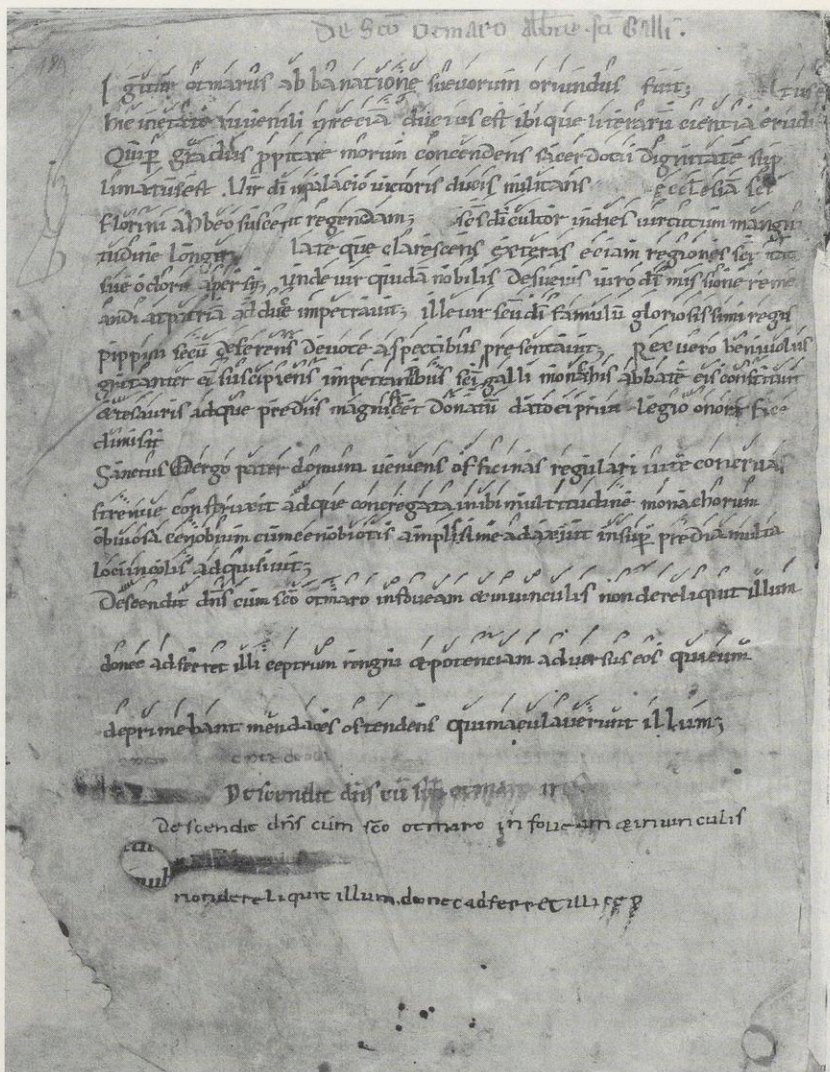 De Sco Otmaro Abbte sci Galli.
184
Igitur otmarus abba natione suevorum oriundus fuit;
hic in etate iuvenili in recia ductus est ibique literarū cientiā erudi
Qui p̄ gradus p̄pitate morum concendens sacerdotii dignitate sup
limatus est Uir di in palacio uictoris ducis militans ecclesiā sci
florini ab beo suscepit regendam; scs di cultor in dies uirtutum
tudine longe lateque clarescens exteras eciam regiones
sue odore aspersit, unde uir quidā nobilis De suevis uiro di missione
andi at patriā adduc̄ impetrauit; ille uir scm di famulū gloriosissimi regis
pippini secū deferens Devote aspectibus presentauit; Rex uero benivolus
gratanter eū suscipiens impetrantibus sci galli monachis abbatē eis constituit
& tesauris adque prediis magnificet Donatū dato ei priui legio onorifice
dimisit
Sanctus ergo pater domum ueniens officinas regulari uite
strenue construxit adque concregata inibi multitudine monachorum
obiuosa cenobium cum cenobiotis amplissime adauxit insup̄ predia multa
loci incolis adquisiuit;
Descendit dn̄s cum sc̄o otmaro in foueam & in uinculis non dereliquit illum
donec adferret illi ceptrum rengni & potenciam aduersus eos qui eum
deprimebant mendaces ostendens qui maculauerunt illum;
Descendit dn̄s cū otmaro
Descendit dn̄s cum sc̄o otmaro in foueam & in uinculis
non dereliquit illum. donec adferret illi cep